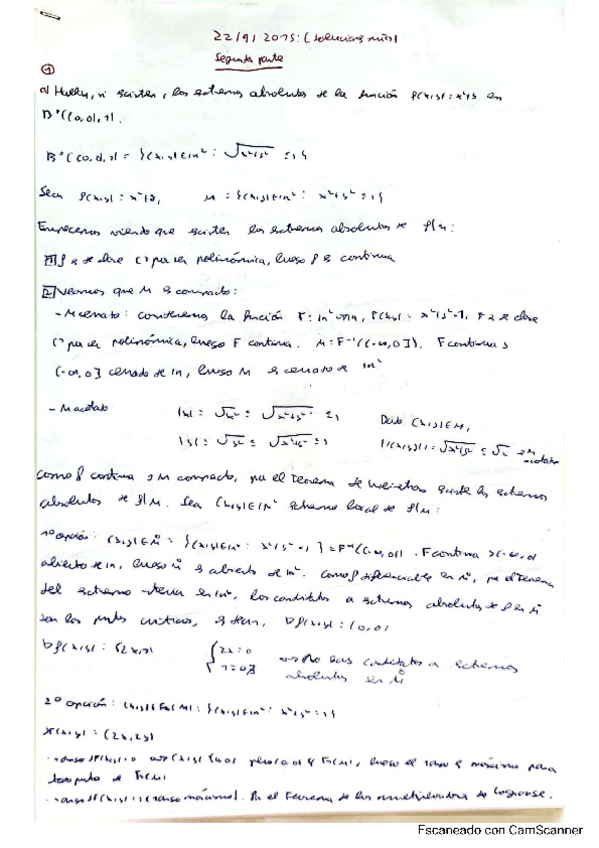 22/9/2015: (soluciones mías)
Segunda parte
①
a) Hallar, si existen, los extremos absolutos de la función f(x,y) = x²+y en
B*((0,0),1).
B*((0,0),1) = {(x,y)∈ℝ² : √x²+y² ≤ 1}
Sean f(x,y) = x²+y, M = {(x,y)∈ℝ² : x²+y² ≤ 1}
Empecemos viendo que existen los extremos absolutos de f|M:
1 f es de clase C¹ por ser polinómica, luego f es continua
2 Veamos que M es compacto:
- M cerrado: consideremos la función F: ℝ²→ℝ, F(x,y) = x²+y²-1, F es de clase
C¹ por ser polinómica, luego F continua. M = F⁻¹((-∞,0]). F continua y
(-∞,0] cerrado de ℝ, luego M es cerrado de ℝ²
- M acotado |x| = √x² ≤ √x²+y² ≤ 1 Dado (x,y)∈M,
|y| = √y² ≤ √x²+y² ≤ 1 ||(x,y)|| = √x²+y² ≤ M acotado
Como f continua y M compacto, por el Teorema de Weierstrass existen los extremos
absolutos de f|M. Sea (x,y)∈ℝ² extremo local de f|M:
1ª opción: (x,y)∈M̊ = {(x,y)∈ℝ² : x²+y² < 1} = F⁻¹((-∞,0)). F continua y (-∞,0)
abierto de ℝ, luego M̊ es abierto de ℝ². Como f diferenciable en M̊, por el Teorema
del extremo interior en ℝ², los candidatos a extremos absolutos de f en M̊
son los puntos críticos, es decir, ∇f(x,y) = (0,0)
∇f(x,y) = (2x,1) {2x=0 1=0 → No hay candidatos a extremos
absolutos en M̊
2ª opción: (x,y)∈Fr(M) = {(x,y)∈ℝ² : x²+y² = 1}
(x,y) = (2x,2y)
(x,y) = (0,0) pero (0,0) ∉ Fr(M), luego el rango es máximo para
todo punto de Fr(M)
(rango máximo). Por el Teorema de los multiplicadores de Lagrange,
Escaneado con CamScanner